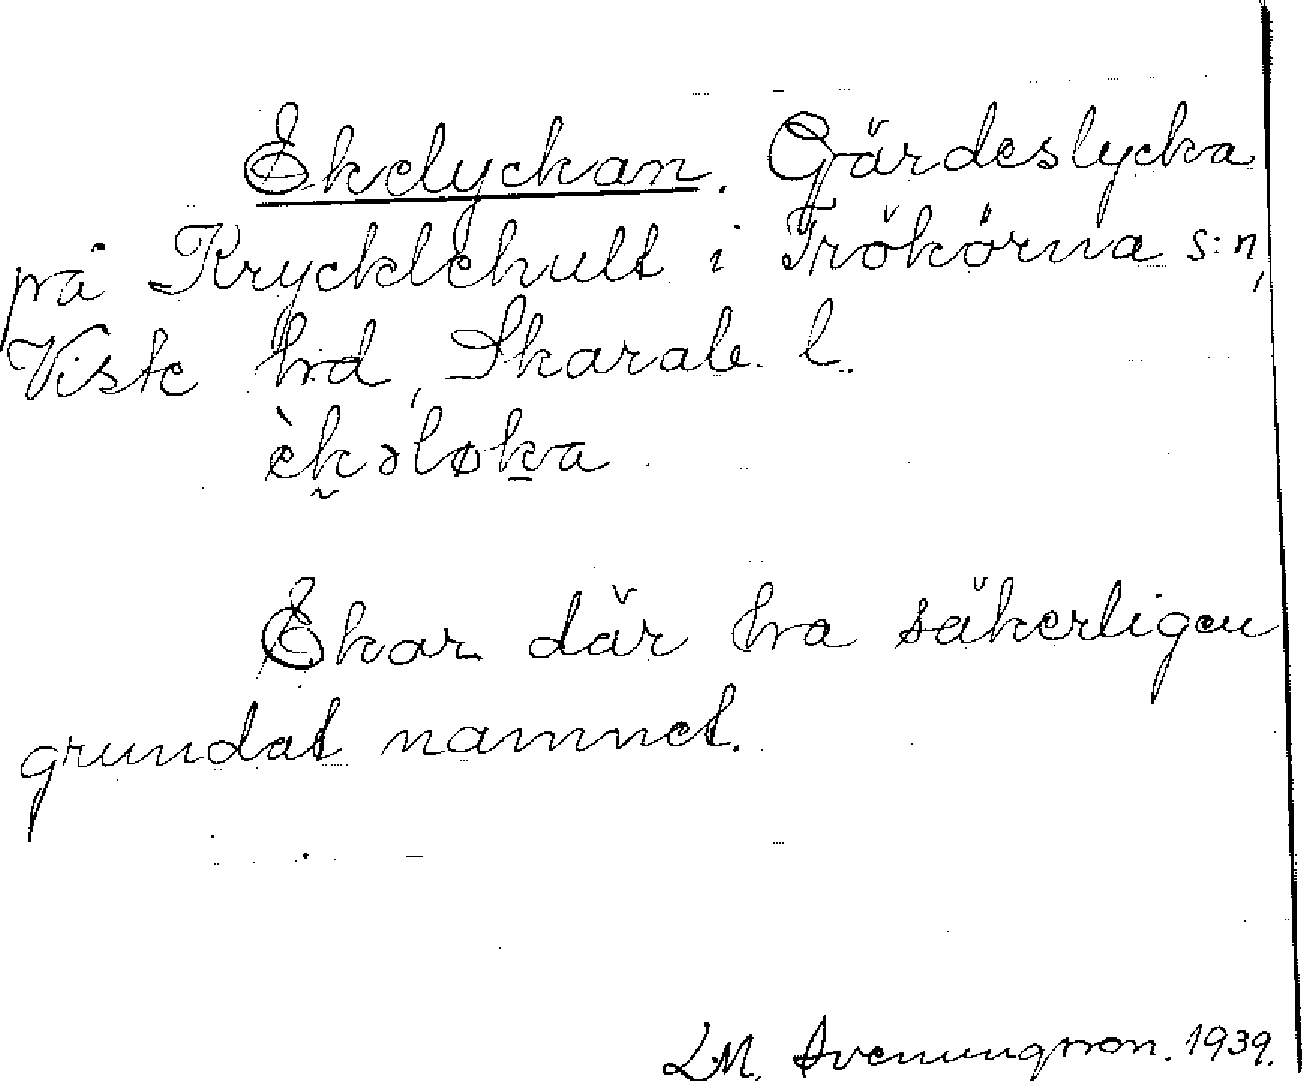 Ekelyckan. Gärdeslycka
på Krycklehult i Trökörna s:n,
Viste hd, Skarab. l.
èk̰əløk̠a
Ekar där ha säkerligen
grundat namnet.
LM. Svenungsson. 1939.